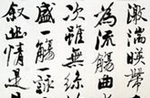 激湍暎帶
為流觴曲
次雖無絲
盛一觴一詠
叙幽情是